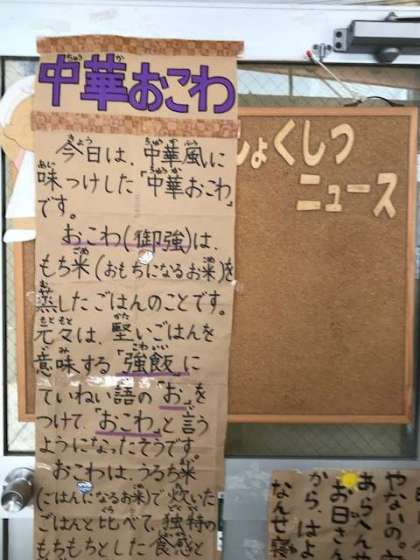 中華おこわ
今日は、中華風に
味つけした「中華おこわ」
です。
おこわ(御強)は、
もち米(おもちになるお米)を
蒸したごはんのことです。
元々は、堅いごはんを
意味する「強飯」に
ていねい語の「お」を
つけて、「おこわ」と言う
ようになったそうです。
おこわは、うるち米
(ごはんになるお米)で炊いた
ごはんと比べて、独特の
もちもちとした食感と
しょくしつ
ニュース
やないの
あらへんせ
お日さ
から、はよ
なんせ寝